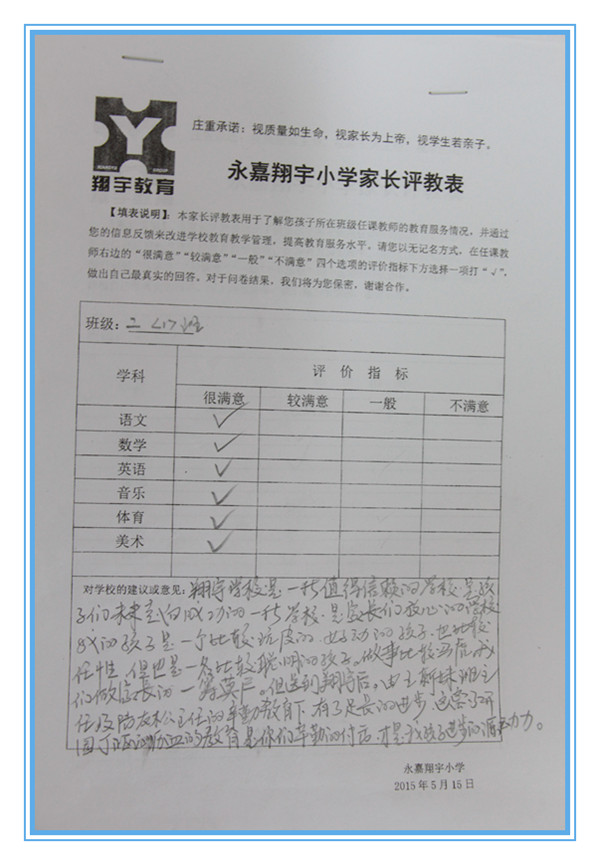 翔宇教育
庄重承诺：视质量如生命，视家长为上帝，视学生若亲子。
永嘉翔宇小学家长评教表
【填表说明】：本家长评教表用于了解您孩子所在班级任课教师的教育服务情况，并通过
您的信息反馈来改进学校教育教学管理，提高教育服务水平。请您以无记名方式，在任课教
师右边的“很满意”“较满意”“一般”“不满意”四个选项的评价指标下方选择一项打“√”，
做出自己最真实的回答。对于问卷结果，我们将为您保密，谢谢合作。
班级：二（1）班
学科 评 价 指 标
很满意 较满意 一般 不满意
语文 √
数学 √
英语 √
音乐 √
体育 √
美术 √
对学校的建议或意见：翔宇学校是一所值得信赖的学校.是孩
子们未来走向成功的一所学校.是家长们放心的学校
我的孩子是一个比较顽皮的.好动的孩子.也比较
任性.但也是一名比较聪明的孩子.做事比较
们做家长的一筹莫展.但送到翔宇后.由王
任及的辛勤教育下.有了足长的进步.
园丁的教育是你们辛勤的付出.才是我孩子进步的动力。
永嘉翔宇小学
2015年5月15日